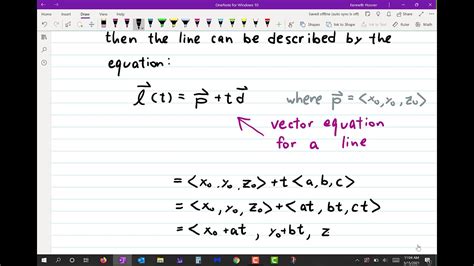 OneNote for Windows 10
Kenneth Hoover
then the line can be described by the
equation:
l⃗(t) = p⃗ + t d⃗
where p⃗ = <x₀, y₀, z₀>
vector equation
for a line
= <x₀, y₀, z₀> + t<a, b, c>
= <x₀, y₀, z₀> + <at, bt, ct>
= <x₀ + at, y₀ + bt, z